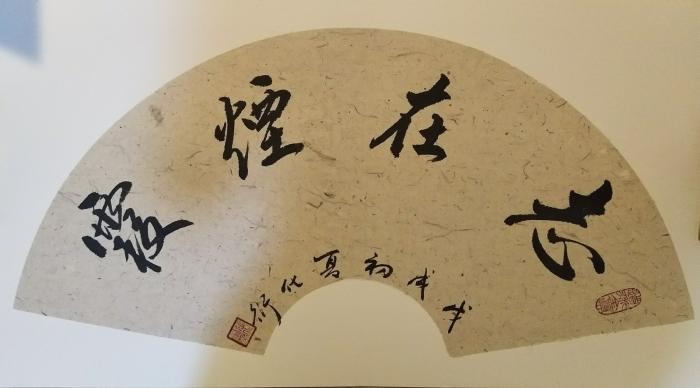 志在煙霞
戊戌初夏